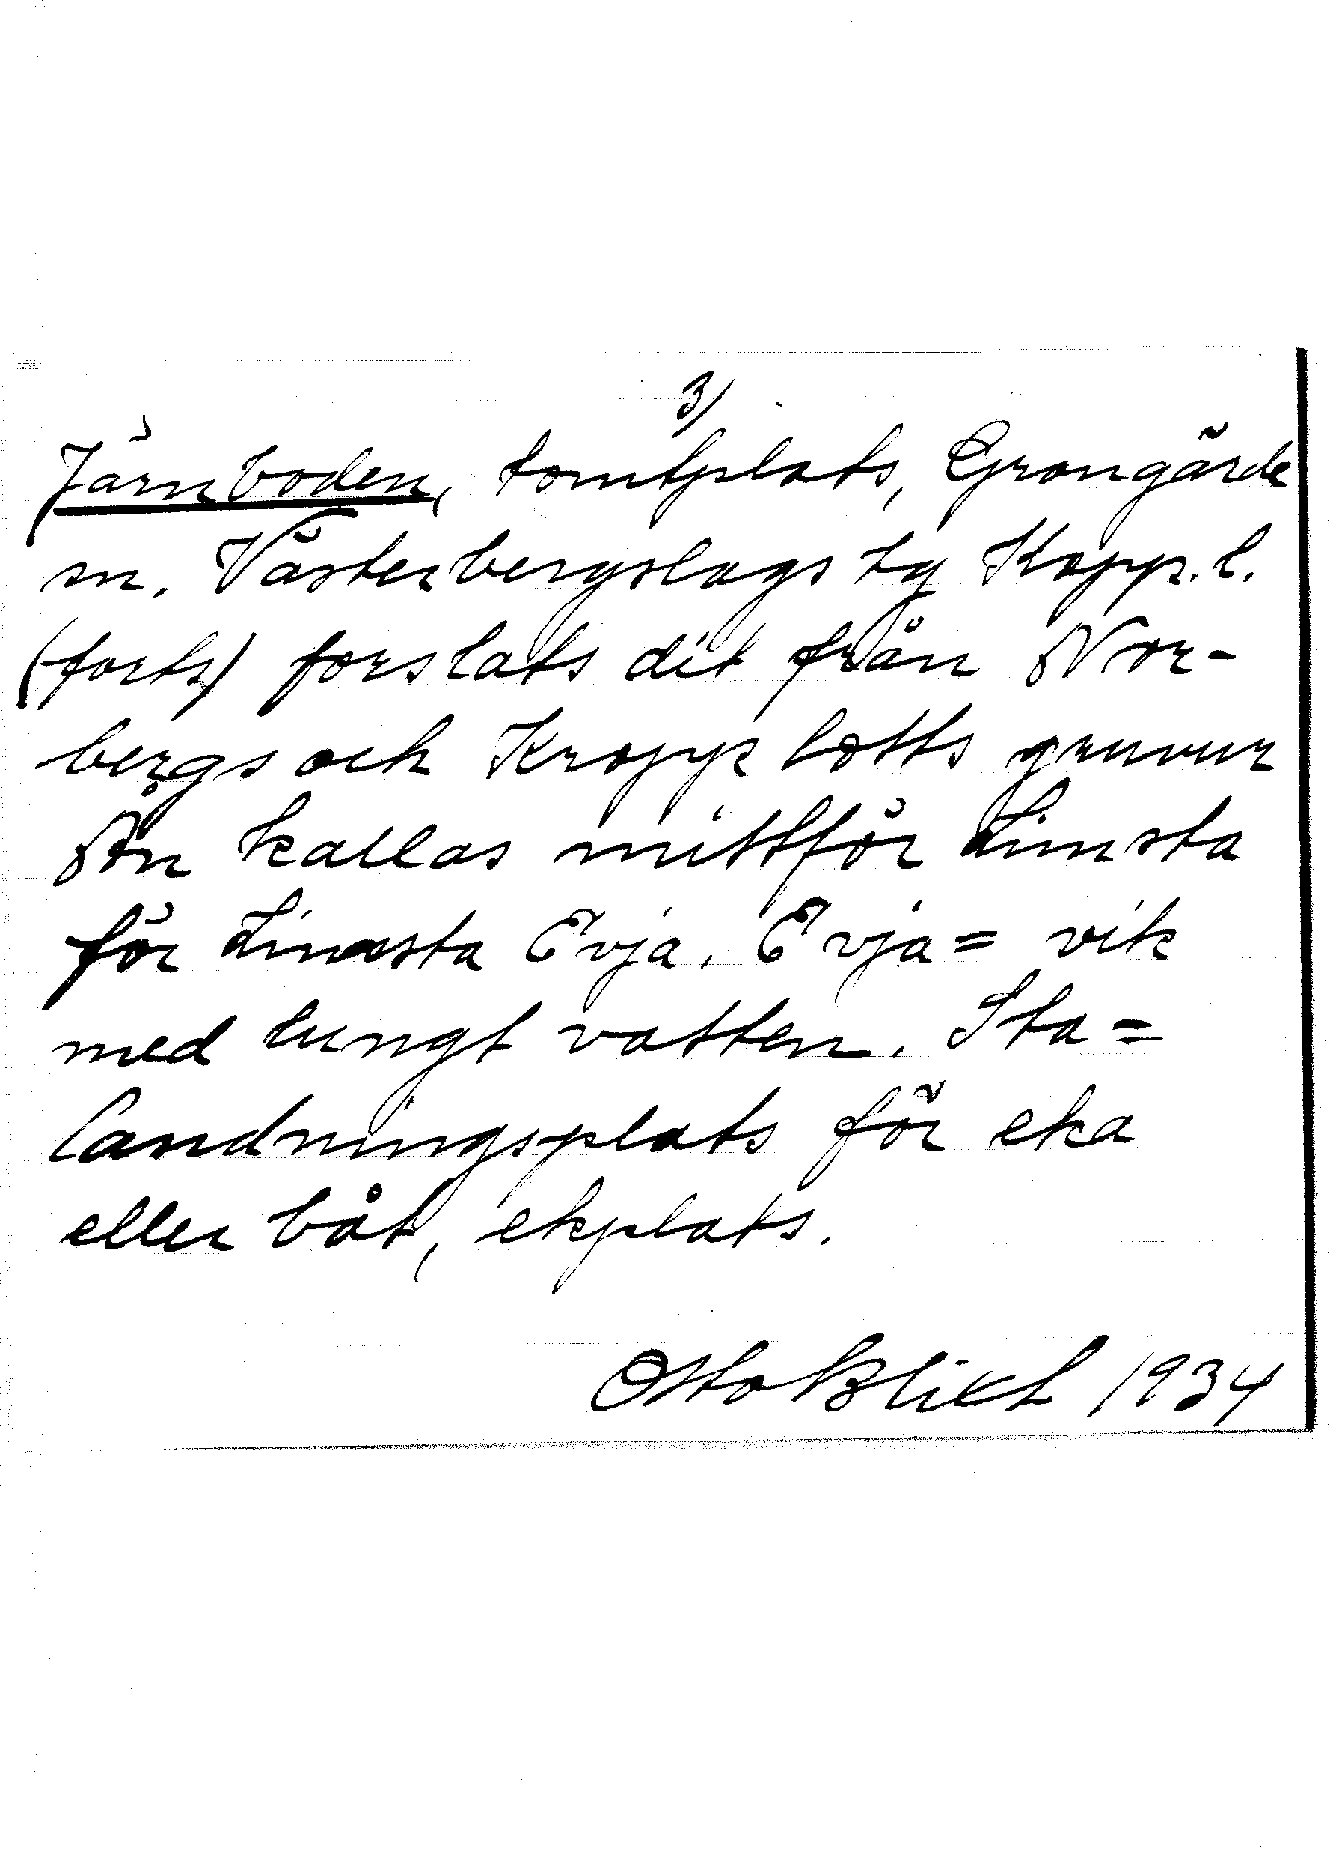 3)
Järnboden, tomtplats, Grangärde
sn. Västerbergslags tg Kopp. l.
(forts) forslats dit från Nor-
bergs och Kropps lotts gruvur
Ån kallas mittför Limsta
för Limsta Evja. Evja= vik
med lungt vatten. Sta=
landningsplats för eka
eller båt, ekplats.
Otto Blixt 1934